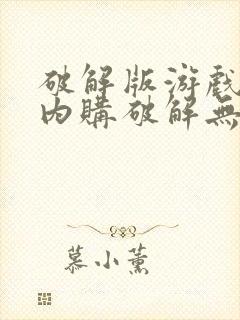 破解版游戲
內購破解無
慕小薰